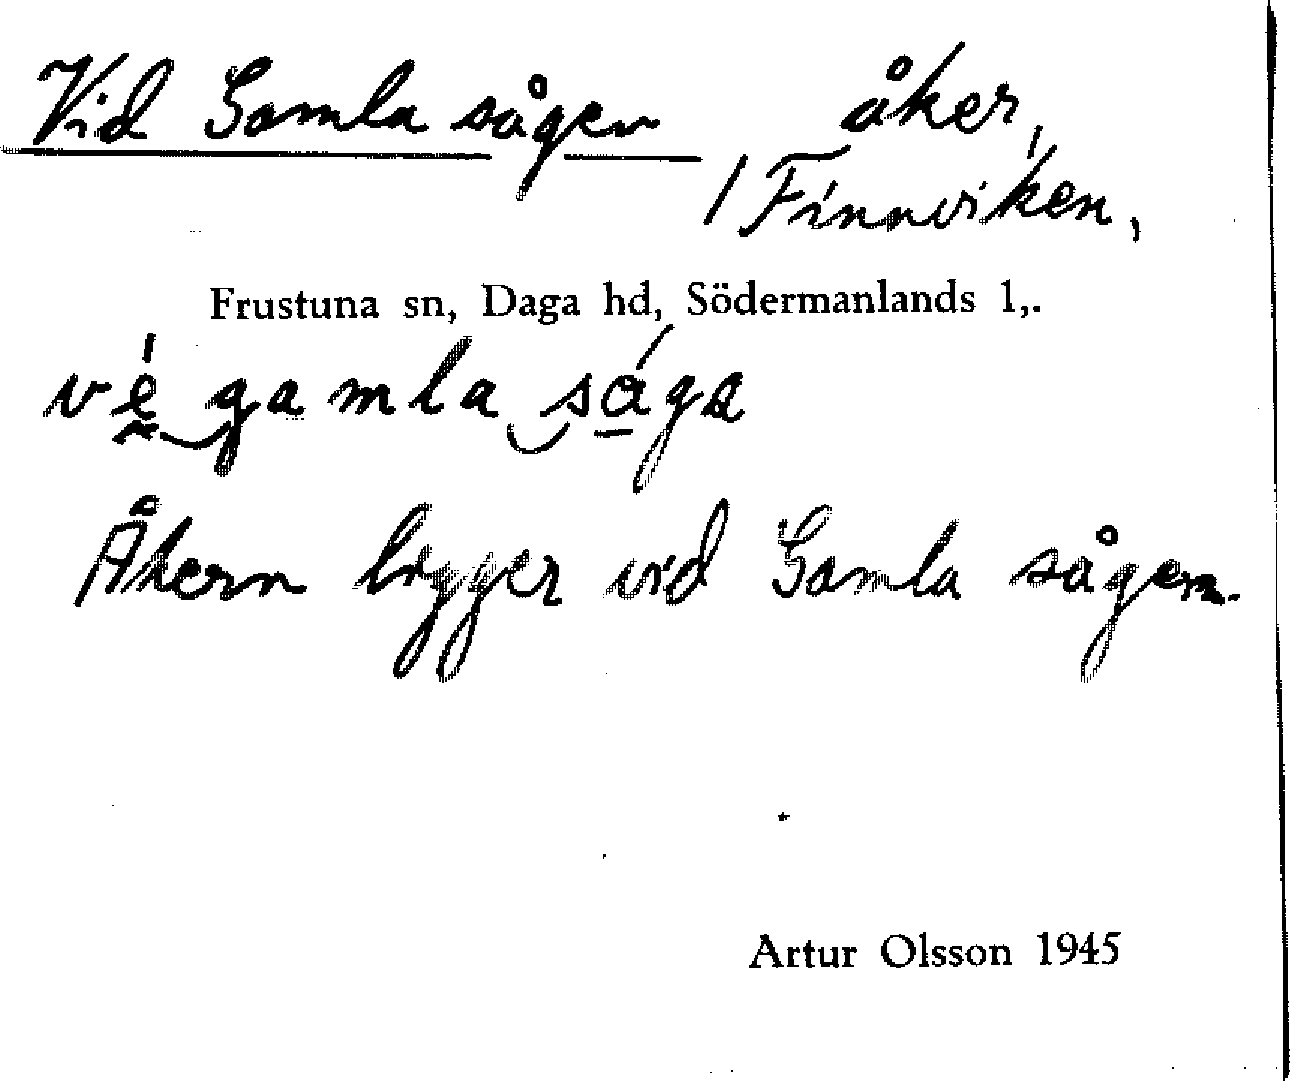 Vid Gamla sågen åker,
/ Finnviken,
Frustuna sn, Daga hd, Södermanlands l,.
vé gamla sága
Åkern ligger vid Gamla sågen.
Artur Olsson 1945